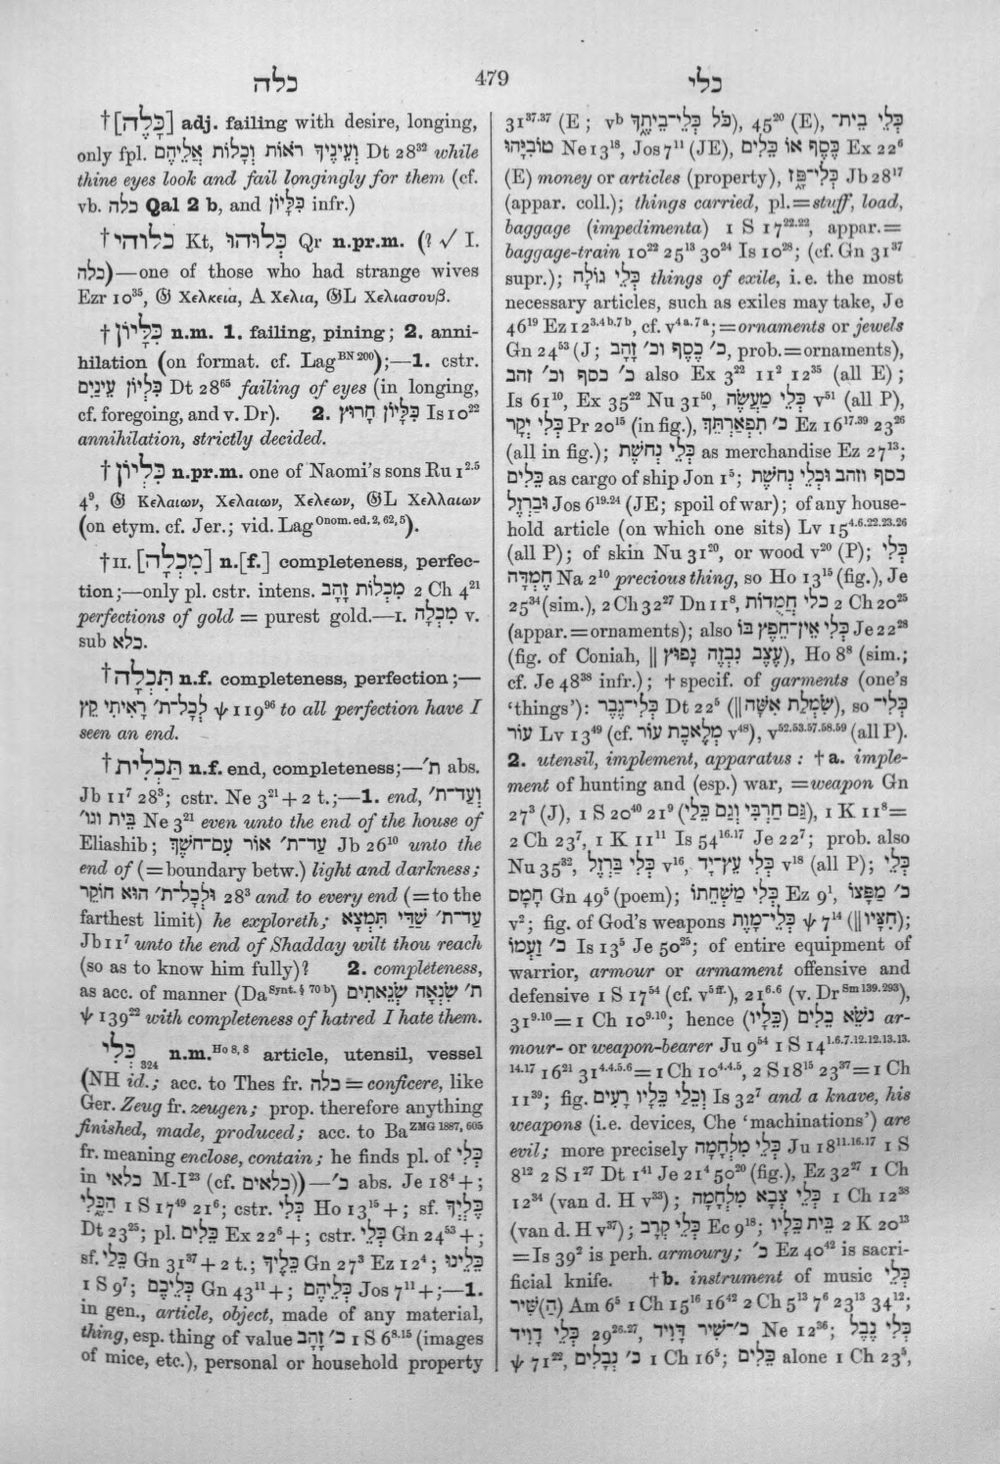 כלה
479
כלי
†[כָּלֶה] adj. failing with desire, longing,
only fpl. וְעֵינֶיךָ רֹאוֹת וְכָלוֹת אֲלֵיהֶם Dt 28³² while
thine eyes look and fail longingly for them (cf.
vb. כלה Qal 2 b, and כִּלָּיוֹן infr.)
†כלוהי Kt, כְּלוּהוּ Qr n.pr.m. (? √ I.
כלה)—one of those who had strange wives
Ezr 10³⁵, 𝔊 Χελκεια, A Χελια, 𝔊L Χελιασουβ.
†כִּלָּיוֹן n.m. 1. failing, pining; 2. anni-
hilation (on format. cf. Lag BN 200);—1. cstr.
כִּלְיוֹן עֵינַיִם Dt 28⁶⁵ failing of eyes (in longing,
cf. foregoing, and v. Dr). 2. כִּלָּיוֹן חָרוּץ Is 10²²
annihilation, strictly decided.
†כִּלְיוֹן n.pr.m. one of Naomi's sons Ru 1²·⁵
4⁹, 𝔊 Κελαιων, Χελαιων, Χελεων, 𝔊L Χελλαιων
(on etym. cf. Jer.; vid. Lag Onom. ed. 2, 62, 5).
†II. [מִכְלָה] n.[f.] completeness, perfec-
tion;—only pl. cstr. intens. מִכְלוֹת זָהָב 2 Ch 4²¹
perfections of gold = purest gold.—I. מִכְלָה v.
sub כלא.
†תִּכְלָה n.f. completeness, perfection;—
לְכָל־ת׳ רָאִיתִי קֵץ ψ 119⁹⁶ to all perfection have I
seen an end.
†תַּכְלִית n.f. end, completeness;—ת׳ abs.
Jb 11⁷ 28³; cstr. Ne 3²¹ + 2 t.;—1. end, וְעַד־ת׳
בֵּית וגו׳ Ne 3²¹ even unto the end of the house of
Eliashib; עַד־ת׳ אוֹר עִם־חשֶׁךְ Jb 26¹⁰ unto the
end of (=boundary betw.) light and darkness;
וּלְכָל־ת׳ הוּא חוֹקֵר 28³ and to every end (=to the
farthest limit) he exploreth; עַד־ת׳ שַׁדַּי תִּמְצָא
Jb 11⁷ unto the end of Shadday wilt thou reach
(so as to know him fully)? 2. completeness,
as acc. of manner (Da Synt. § 70 b) ת׳ שִׂנְאָה שְׂנֵאתִים
ψ 139²² with completeness of hatred I hate them.
כְּלִי 324 n.m. Ho 8, 8 article, utensil, vessel
(NH id.; acc. to Thes fr. כלה = conficere, like
Ger. Zeug fr. zeugen; prop. therefore anything
finished, made, produced; acc. to Ba ZMG 1887, 605
fr. meaning enclose, contain; he finds pl. of כְּלִי
in כלאי M-I²³ (cf. כלאים))—כ׳ abs. Je 18⁴ +;
הַכֶּלִי 1 S 17⁴⁹ 21⁶; cstr. כְּלִי Ho 13¹⁵ +; sf. כֶּלְיְךָ
Dt 23²⁵; pl. כֵּלִים Ex 22⁶ +; cstr. כְּלֵי Gn 24⁵³ +;
sf. כֵּלַי Gn 31³⁷ + 2 t.; כֵּלֶיךָ Gn 27³ Ez 12⁴; כֵּלֵינוּ
1 S 9⁷; כְּלֵיכֶם Gn 43¹¹ +; כְּלֵיהֶם Jos 7¹¹ +;—1.
in gen., article, object, made of any material,
thing, esp. thing of value כ׳ זָהָב 1 S 6⁸·¹⁵ (images
of mice, etc.), personal or household property
31³⁷·³⁷ (E; vᵇ כֹּל כְּלֵי־בֵיתֶךָ), 45²⁰ (E), כְּלֵי בֵית־
טוֹבִיָּהוּ Ne 13¹⁸, Jos 7¹¹ (JE), כֶּסֶף אוֹ כֵלִים Ex 22⁶
(E) money or articles (property), כְּלִי־פָז Jb 28¹⁷
(appar. coll.); things carried, pl.=stuff, load,
baggage (impedimenta) 1 S 17²²·²², appar.=
baggage-train 10²² 25¹³ 30²⁴ Is 10²⁸; (cf. Gn 31³⁷
supr.); כְּלֵי גוֹלָה things of exile, i.e. the most
necessary articles, such as exiles may take, Je
46¹⁹ Ez 12³·⁴ᵇ·⁷ᵇ, cf. v⁴ᵃ·⁷ᵃ; =ornaments or jewels
Gn 24⁵³ (J; כ׳ כֶסֶף וכ׳ זָהָב, prob.=ornaments),
כ׳ כסף וכ׳ זהב also Ex 3²² 11² 12³⁵ (all E);
Is 61¹⁰, Ex 35²² Nu 31⁵⁰, כְּלִי מַעֲשֶׂה v⁵¹ (all P),
כְּלִי יְקָר Pr 20¹⁵ (in fig.), כ׳ תִפְאַרְתֵּךְ Ez 16¹⁷·³⁹ 23²⁶
(all in fig.); כְּלִי נְחשֶׁת as merchandise Ez 27¹³;
כֵּלִים as cargo of ship Jon 1⁵; כסף וזהב וּכְלֵי נְחשֶׁת
וּבַרְזֶל Jos 6¹⁹·²⁴ (JE; spoil of war); of any house-
hold article (on which one sits) Lv 15⁴·⁶·²²·²³·²⁶
(all P); of skin Nu 31²⁰, or wood v²⁰ (P); כְּלִי
חֶמְדָּה Na 2¹⁰ precious thing, so Ho 13¹⁵ (fig.), Je
25³⁴ (sim.), 2 Ch 32²⁷ Dn 11⁸, כלי חֲמֻדוֹת 2 Ch 20²⁵
(appar.=ornaments); also כְּלִי אֵין־חֵפֶץ בּוֹ Je 22²⁸
(fig. of Coniah, || עֶצֶב נִבְזֶה נָפוּץ), Ho 8⁸ (sim.;
cf. Je 48³⁸ infr.); † specif. of garments (one's
'things'): כְּלִי־גֶבֶר Dt 22⁵ (|| שִׂמְלַת אִשָּׁה), so כְּלִי־
עוֹר Lv 13⁴⁹ (cf. מְלֶאכֶת עוֹר v⁴⁸), v⁵²·⁵³·⁵⁷·⁵⁸·⁵⁹ (all P).
2. utensil, implement, apparatus: † a. imple-
ment of hunting and (esp.) war, =weapon Gn
27³ (J), 1 S 20⁴⁰ 21⁹ (גַּם חַרְבִּי וְגַם כֵּלַי), 1 K 11⁸=
2 Ch 23⁷, 1 K 11¹¹ Is 54¹⁶·¹⁷ Je 22⁷; prob. also
Nu 35³², כְּלִי בַרְזֶל v¹⁶, כְּלִי עֵץ־יָד v¹⁸ (all P); כְּלֵי
חָמָס Gn 49⁵ (poem); כְּלִי מַשְׁחֵתוֹ Ez 9¹, כ׳ מַפָּצוֹ
v²; fig. of God's weapons כְּלֵי־מָוֶת ψ 7¹⁴ (|| חִצָּיו);
כ׳ זַעְמוֹ Is 13⁵ Je 50²⁵; of entire equipment of
warrior, armour or armament offensive and
defensive 1 S 17⁵⁴ (cf. v⁵ ᶠᶠ·), 21⁶·⁶ (v. Dr Sm 139. 293),
31⁹·¹⁰=1 Ch 10⁹·¹⁰; hence נֹשֵׂא כֵלִים (כֵּלָיו) ar-
mour- or weapon-bearer Ju 9⁵⁴ 1 S 14¹·⁶·⁷·¹²·¹²·¹³·¹³·
¹⁴·¹⁷ 16²¹ 31⁴·⁴·⁵·⁶=1 Ch 10⁴·⁴·⁵, 2 S 18¹⁵ 23³⁷=1 Ch
11³⁹; fig. וְכֵלַי כֵּלָיו רָעִים Is 32⁷ and a knave, his
weapons (i.e. devices, Che 'machinations') are
evil; more precisely כְּלֵי מִלְחָמָה Ju 18¹¹·¹⁶·¹⁷ 1 S
8¹² 2 S 1²⁷ Dt 1⁴¹ Je 21⁴ 50²⁰ (fig.), Ez 32²⁷ 1 Ch
12³⁴ (van d. H v³³); כְּלֵי צְבָא מִלְחָמָה 1 Ch 12³⁸
(van d. H v³⁷); כְּלֵי קְרָב Ec 9¹⁸; בֵּית כֵּלָיו 2 K 20¹³
=Is 39² is perh. armoury; כ׳ Ez 40⁴² is sacri-
ficial knife. † b. instrument of music כְּלֵי
(הַ)שִּׁיר Am 6⁵ 1 Ch 15¹⁶ 16⁴² 2 Ch 5¹³ 7⁶ 23¹³ 34¹²;
כְּלֵי דָוִיד 29²⁶·²⁷, כ׳־שִׁיר דָּוִיד Ne 12³⁶; כְּלִי נֶבֶל
ψ 71²², כ׳ נְבָלִים 1 Ch 16⁵; כֵּלִים alone 1 Ch 23⁵,